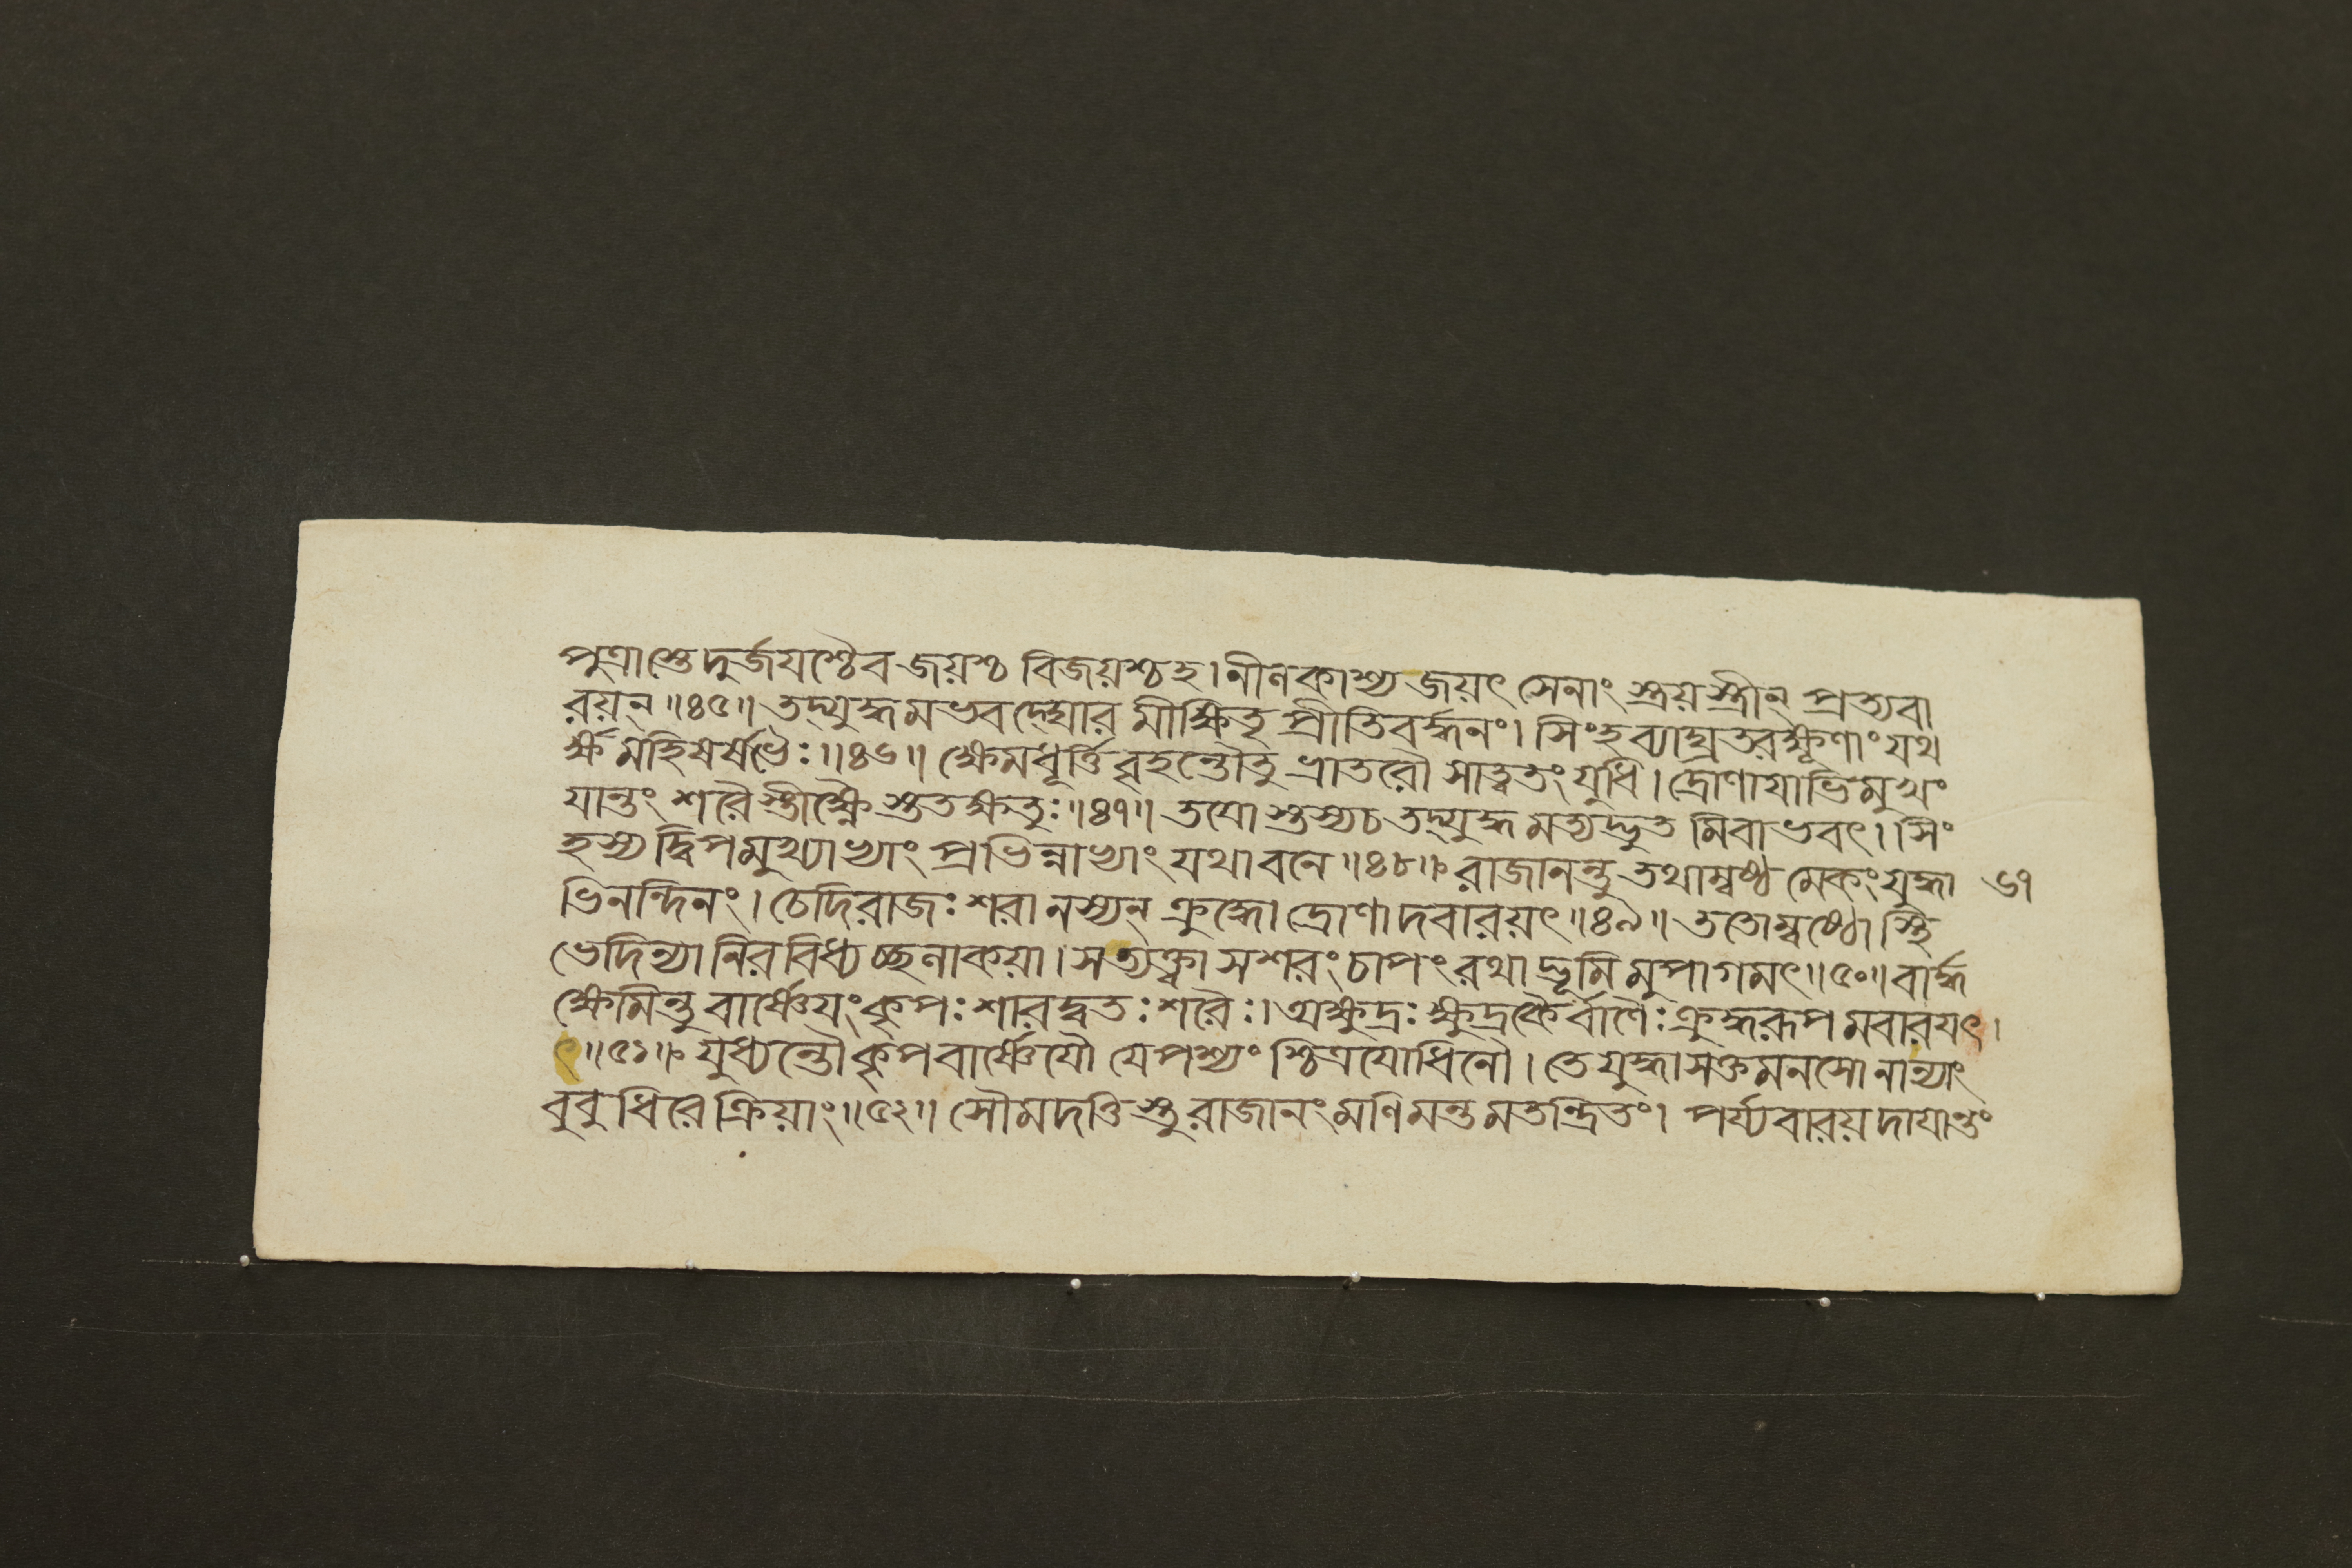 পুত্রাস্তে দুর্জযশ্চৈব জয়শ্চ বিজয়শ্চহ। নীলকাশ্য জয়ৎ সেনাং স্ত্রয়স্ত্রীন্ প্রত্যবা
রয়ন্॥৪৫॥ তদ্যুদ্ধমভবদ্ঘোর মীক্ষিতৃ প্রীতিবর্দ্ধনং। সিংহব্যাঘ্রতরক্ষূণাং যথ
র্ক্ষমহিষর্ষভৈঃ॥৪৬॥ ক্ষেমধূর্ত্তিবৃহন্তৌতু ভ্রাতরৌ সাত্বতং যুধি। দ্রোণাযাভিমুখং
যান্তং শরৈস্তীক্ষ্ণৈস্ততক্ষতুঃ॥৪৭॥ তযোস্তস্যচ তদ্যুদ্ধমত্যদ্ভুতমিবাভবৎ। সিং
হস্যদ্বিপমুখ্যাভ্যাং প্রভিন্নাভ্যাং যথাবনে॥৪৮॥ রাজানন্তু তথাম্বষ্ঠ মেকংযুদ্ধা ৬৭
ভিনন্দিনং। চেদিরাজঃ শরানস্যন্ ক্রুদ্ধো দ্রোণাদবারয়ৎ॥৪৯॥ ততোম্বষ্ঠোস্থি
ভেদিন্যা নিরবিধ্যচ্ছলাকয়া। সত্যক্ত্বা সশরং চাপং রথাদ্ভূমিমুপাগমৎ॥৫০॥ বার্দ্ধ
ক্ষেমিন্তু বার্ষ্ণেযং কৃপঃ শারদ্বতঃ শরৈঃ। অক্ষুদ্রঃ ক্ষুদ্রকৈর্বাণৈঃ ক্রুদ্ধরূপমবারযৎ।
ৎ॥৫১॥ যুধ্যন্তৌ কৃপবার্ষ্ণেযৌ যেপশ্যং শ্চিত্রযোধিনৌ। তে যুদ্ধাসক্তমনসো নান্যাং
বুবুধিরে ক্রিয়াং॥৫২॥ সৌমদত্তিস্তু রাজানং মণিমন্তমতন্দ্রিতং। পর্য্যবারয়দাযান্তং